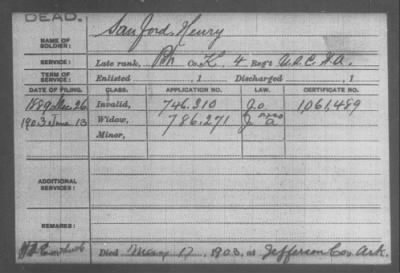 DEAD.
NAME OF SOLDIER: Sanford, Henry
SERVICE: Late rank, Co. K, 4 Reg't U.S.C. H.A.
TERM OF SERVICE: Enlisted , 1 Discharged , 1
DATE OF FILING. CLASS. APPLICATION NO. LAW. CERTIFICATE NO.
1889 26 Invalid, 746.210 1061,489
1903 June 13 Widow, 786,271
Minor,
ADDITIONAL SERVICES:
REMARKS:
Died May 17, 1903, at Jefferson Co. Ark.